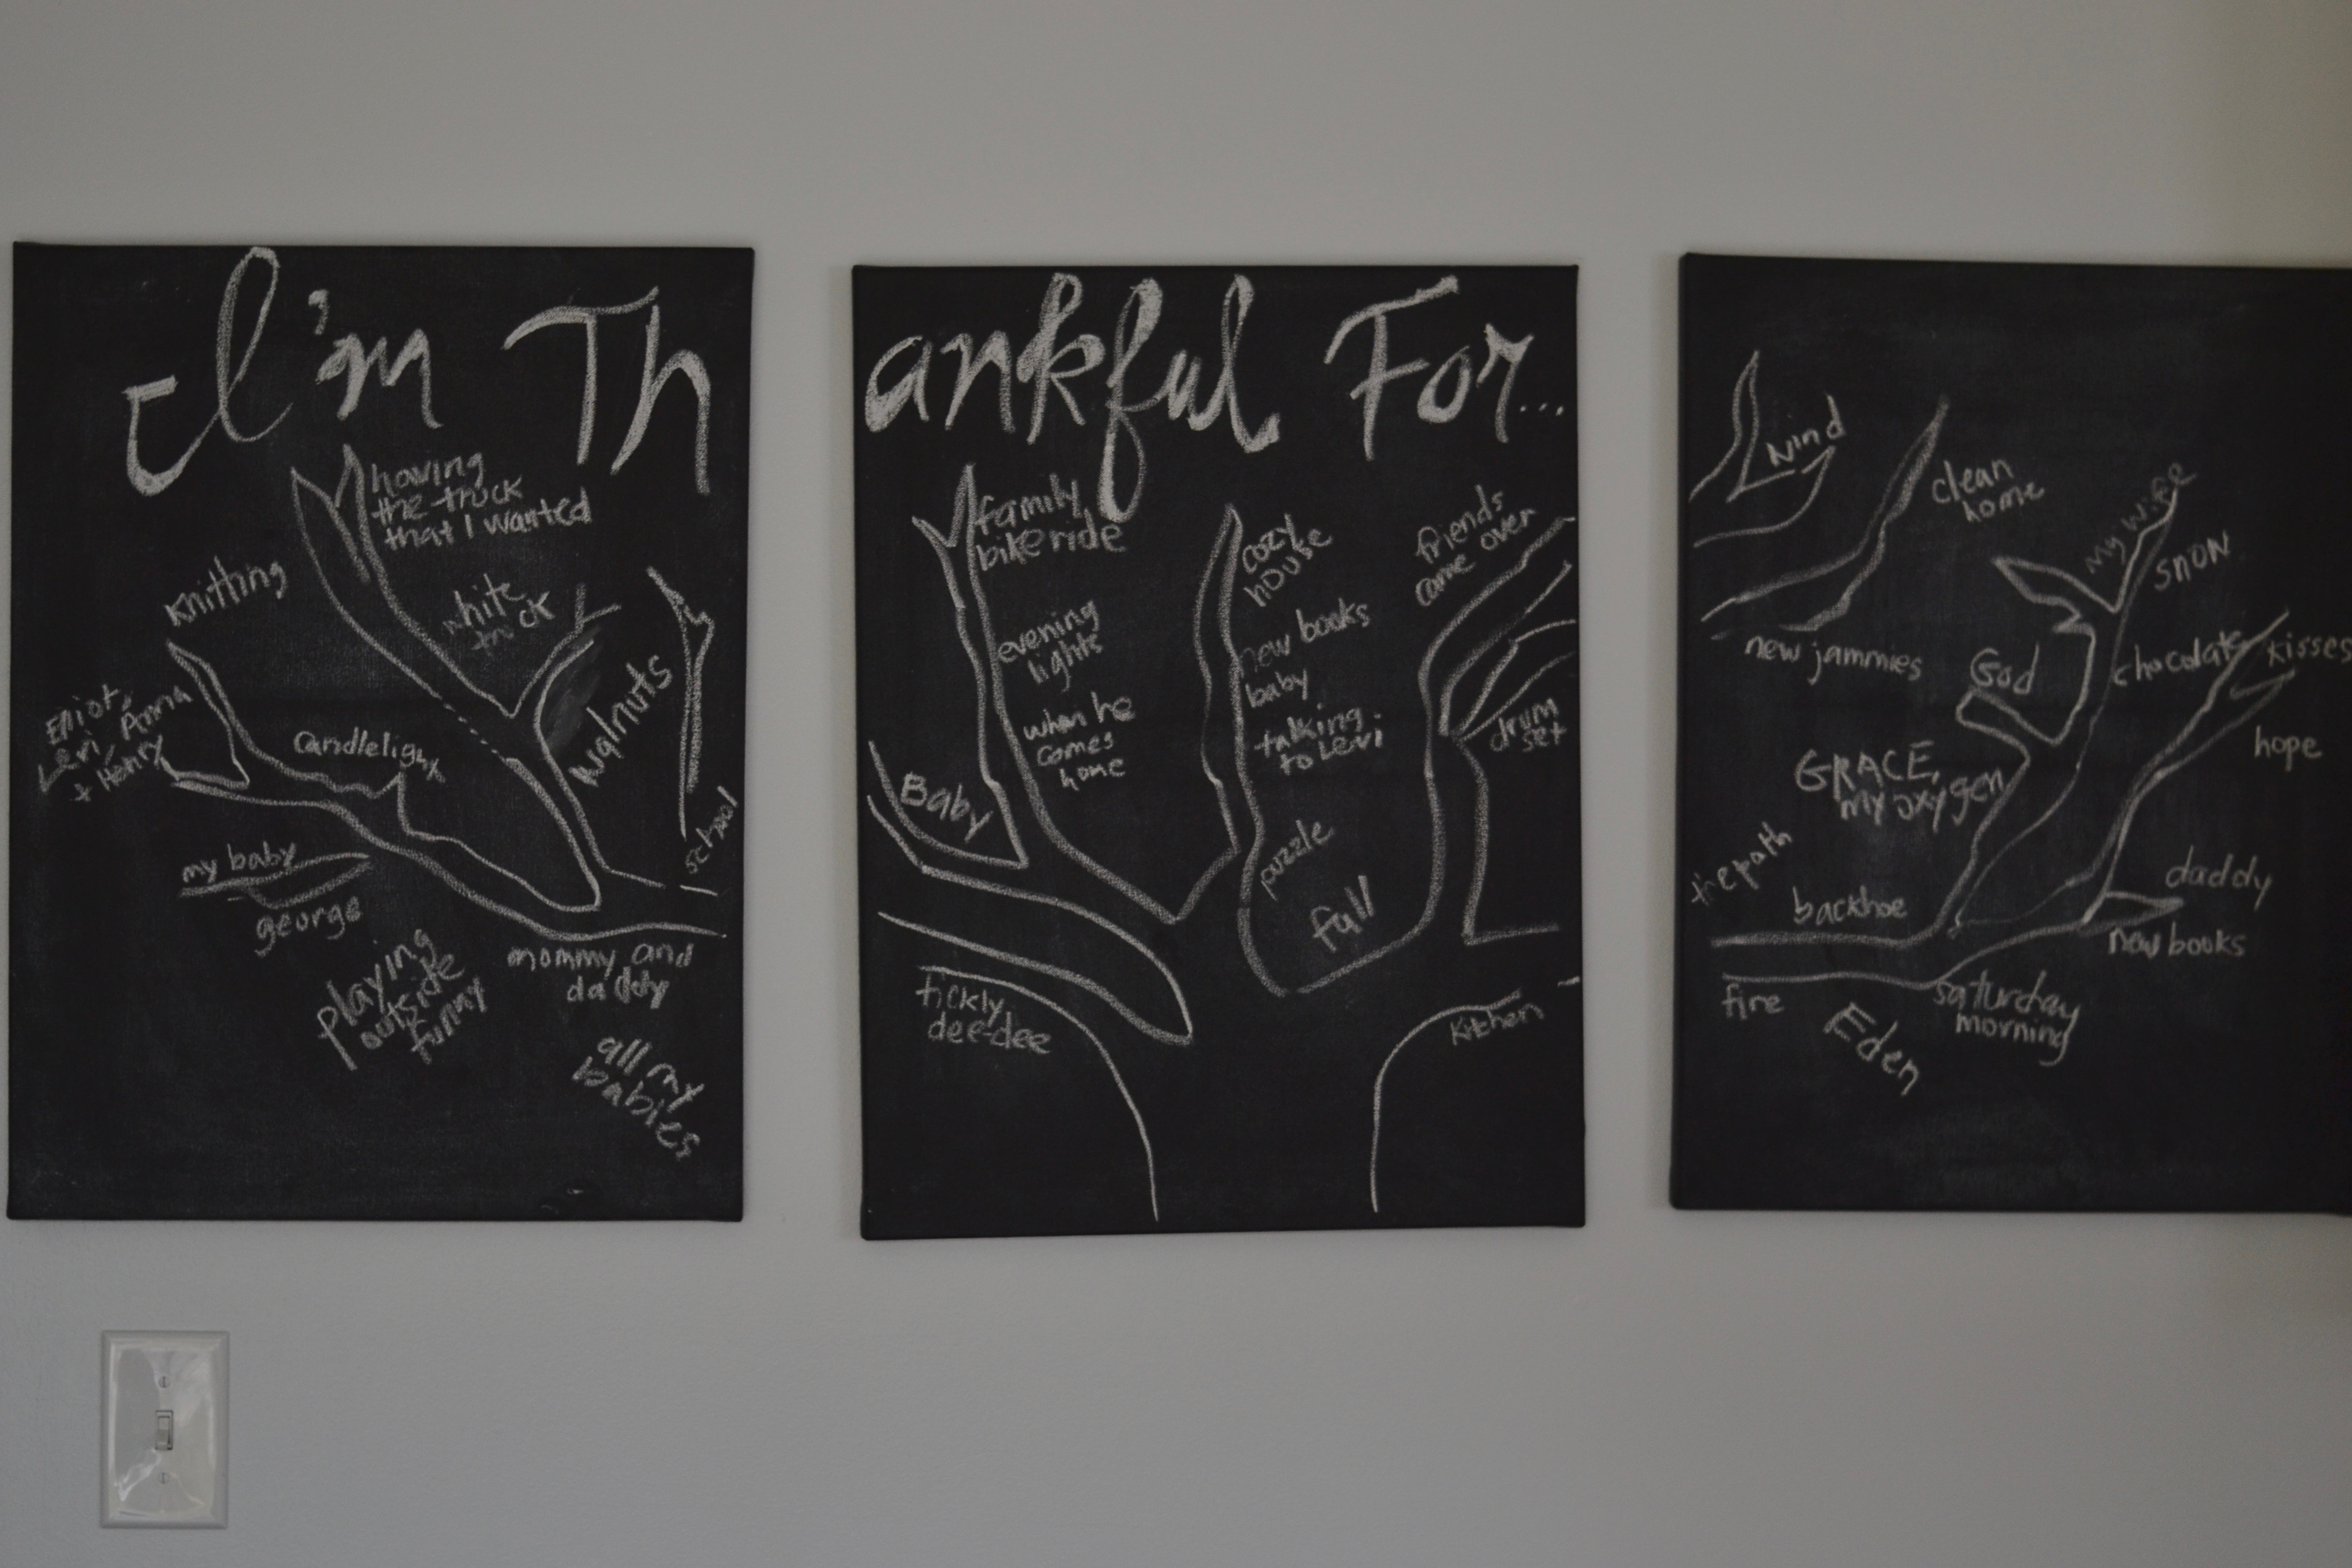 I'm Th
having
the truck
that I wanted
knitting
white
truck
Eliot,
Levi, Anna
+ Henry
Candlelight
walnuts
school
my baby
george
playing
outside
funny
mommy and
daddy
all my
babies
ankful For...
family
bike ride
cozy
house
friends
came over
evening
lights
new books
baby
when he
comes
home
talking
to Levi
drum
set
Baby
puzzle
fall
tickly
dee-dee
kitchen
wind
clean
home
my wife
snow
new jammies
God
chocolate
kisses
hope
GRACE,
my oxygen
backhoe
daddy
new books
fire
saturday
morning
Eden